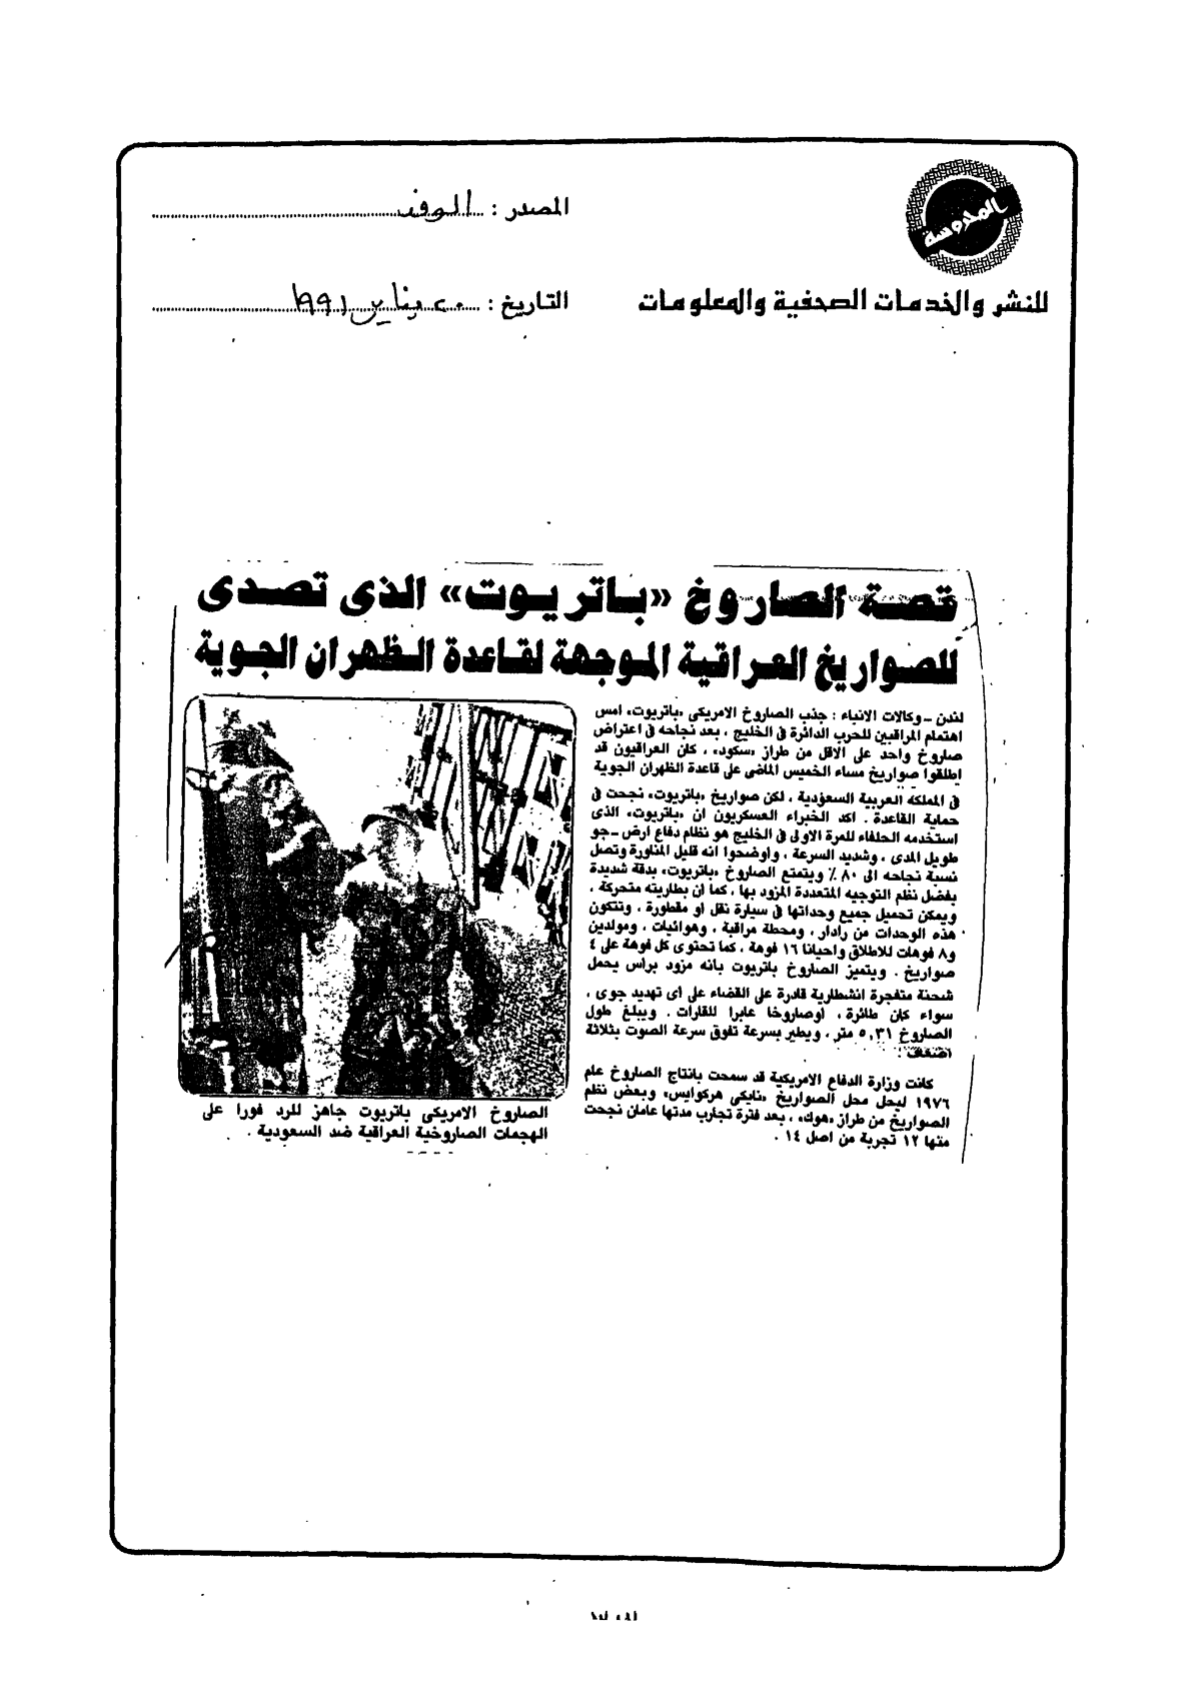 المدروسة
للنشر والخدمات الصحفية والمعلومات
المصدر : الوفد
التاريخ : ٢٠ يناير ١٩٩١
قصة الصاروخ «باتريوت» الذى تصدى
للصواريخ العراقية الموجهة لقاعدة الظهران الجوية
لندن - وكالات الانباء : جذب الصاروخ الامريكى «باتريوت» امس
اهتمام المراقبين للحرب الدائرة فى الخليج ، بعد نجاحه فى اعتراض
صاروخ واحد على الاقل من طراز «سكود» ، كان العراقيون قد
اطلقوا صواريخ مساء الخميس الماضى على قاعدة الظهران الجوية
فى المملكه العربية السعؤدية ، لكن صواريخ «باتريوت» نجحت فى
حماية القاعدة . اكد الخبراء العسكريون ان «باتريوت» الذى
استخدمه الحلفاء للمرة الاولى فى الخليج هو نظام دفاع ارض - جو
طويل المدى ، وشديد السرعة ، واوضحوا انه قليل المناورة وتصل
نسبة نجاحه الى ٨٠٪ ويتمتع الصاروخ «باتريوت» بدقة شديدة
بفضل نظم التوجيه المتعددة المزود بها ، كما ان بطاريته متحركة ،
ويمكن تحميل جميع وحداتها فى سيارة نقل او مقطورة ، وتتكون
هذه الوحدات من رادار ، ومحطة مراقبة ، وهوائيات ، ومولدين
و٨ فوهات للاطلاق واحيانا ١٦ فوهة ، كما تحتوى كل فوهة على ٤
صواريخ . ويتميز الصاروخ باتريوت بانه مزود براس يحمل
شحنة متفجرة انشطارية قادرة على القضاء على أى تهديد جوى ،
سواء كان طائرة ، اوصاروخا عابرا للقارات . ويبلغ طول
الصاروخ ٥,٣١ متر ، ويطير بسرعة تفوق سرعة الصوت بثلاثة
اضعاف .
كانت وزارة الدفاع الامريكية قد سمحت بانتاج الصاروخ عام
١٩٧٦ ليحل محل الصواريخ «نايكى هركوايس» وبعض نظم
الصواريخ من طراز «هوك» ، بعد فترة تجارب مدتها عامان نجحت
منها ١٢ تجربة من اصل ١٤ .
الصاروخ الامريكى باتريوت جاهز للرد فورا على
الهجمات الصاروخية العراقية ضد السعودية .